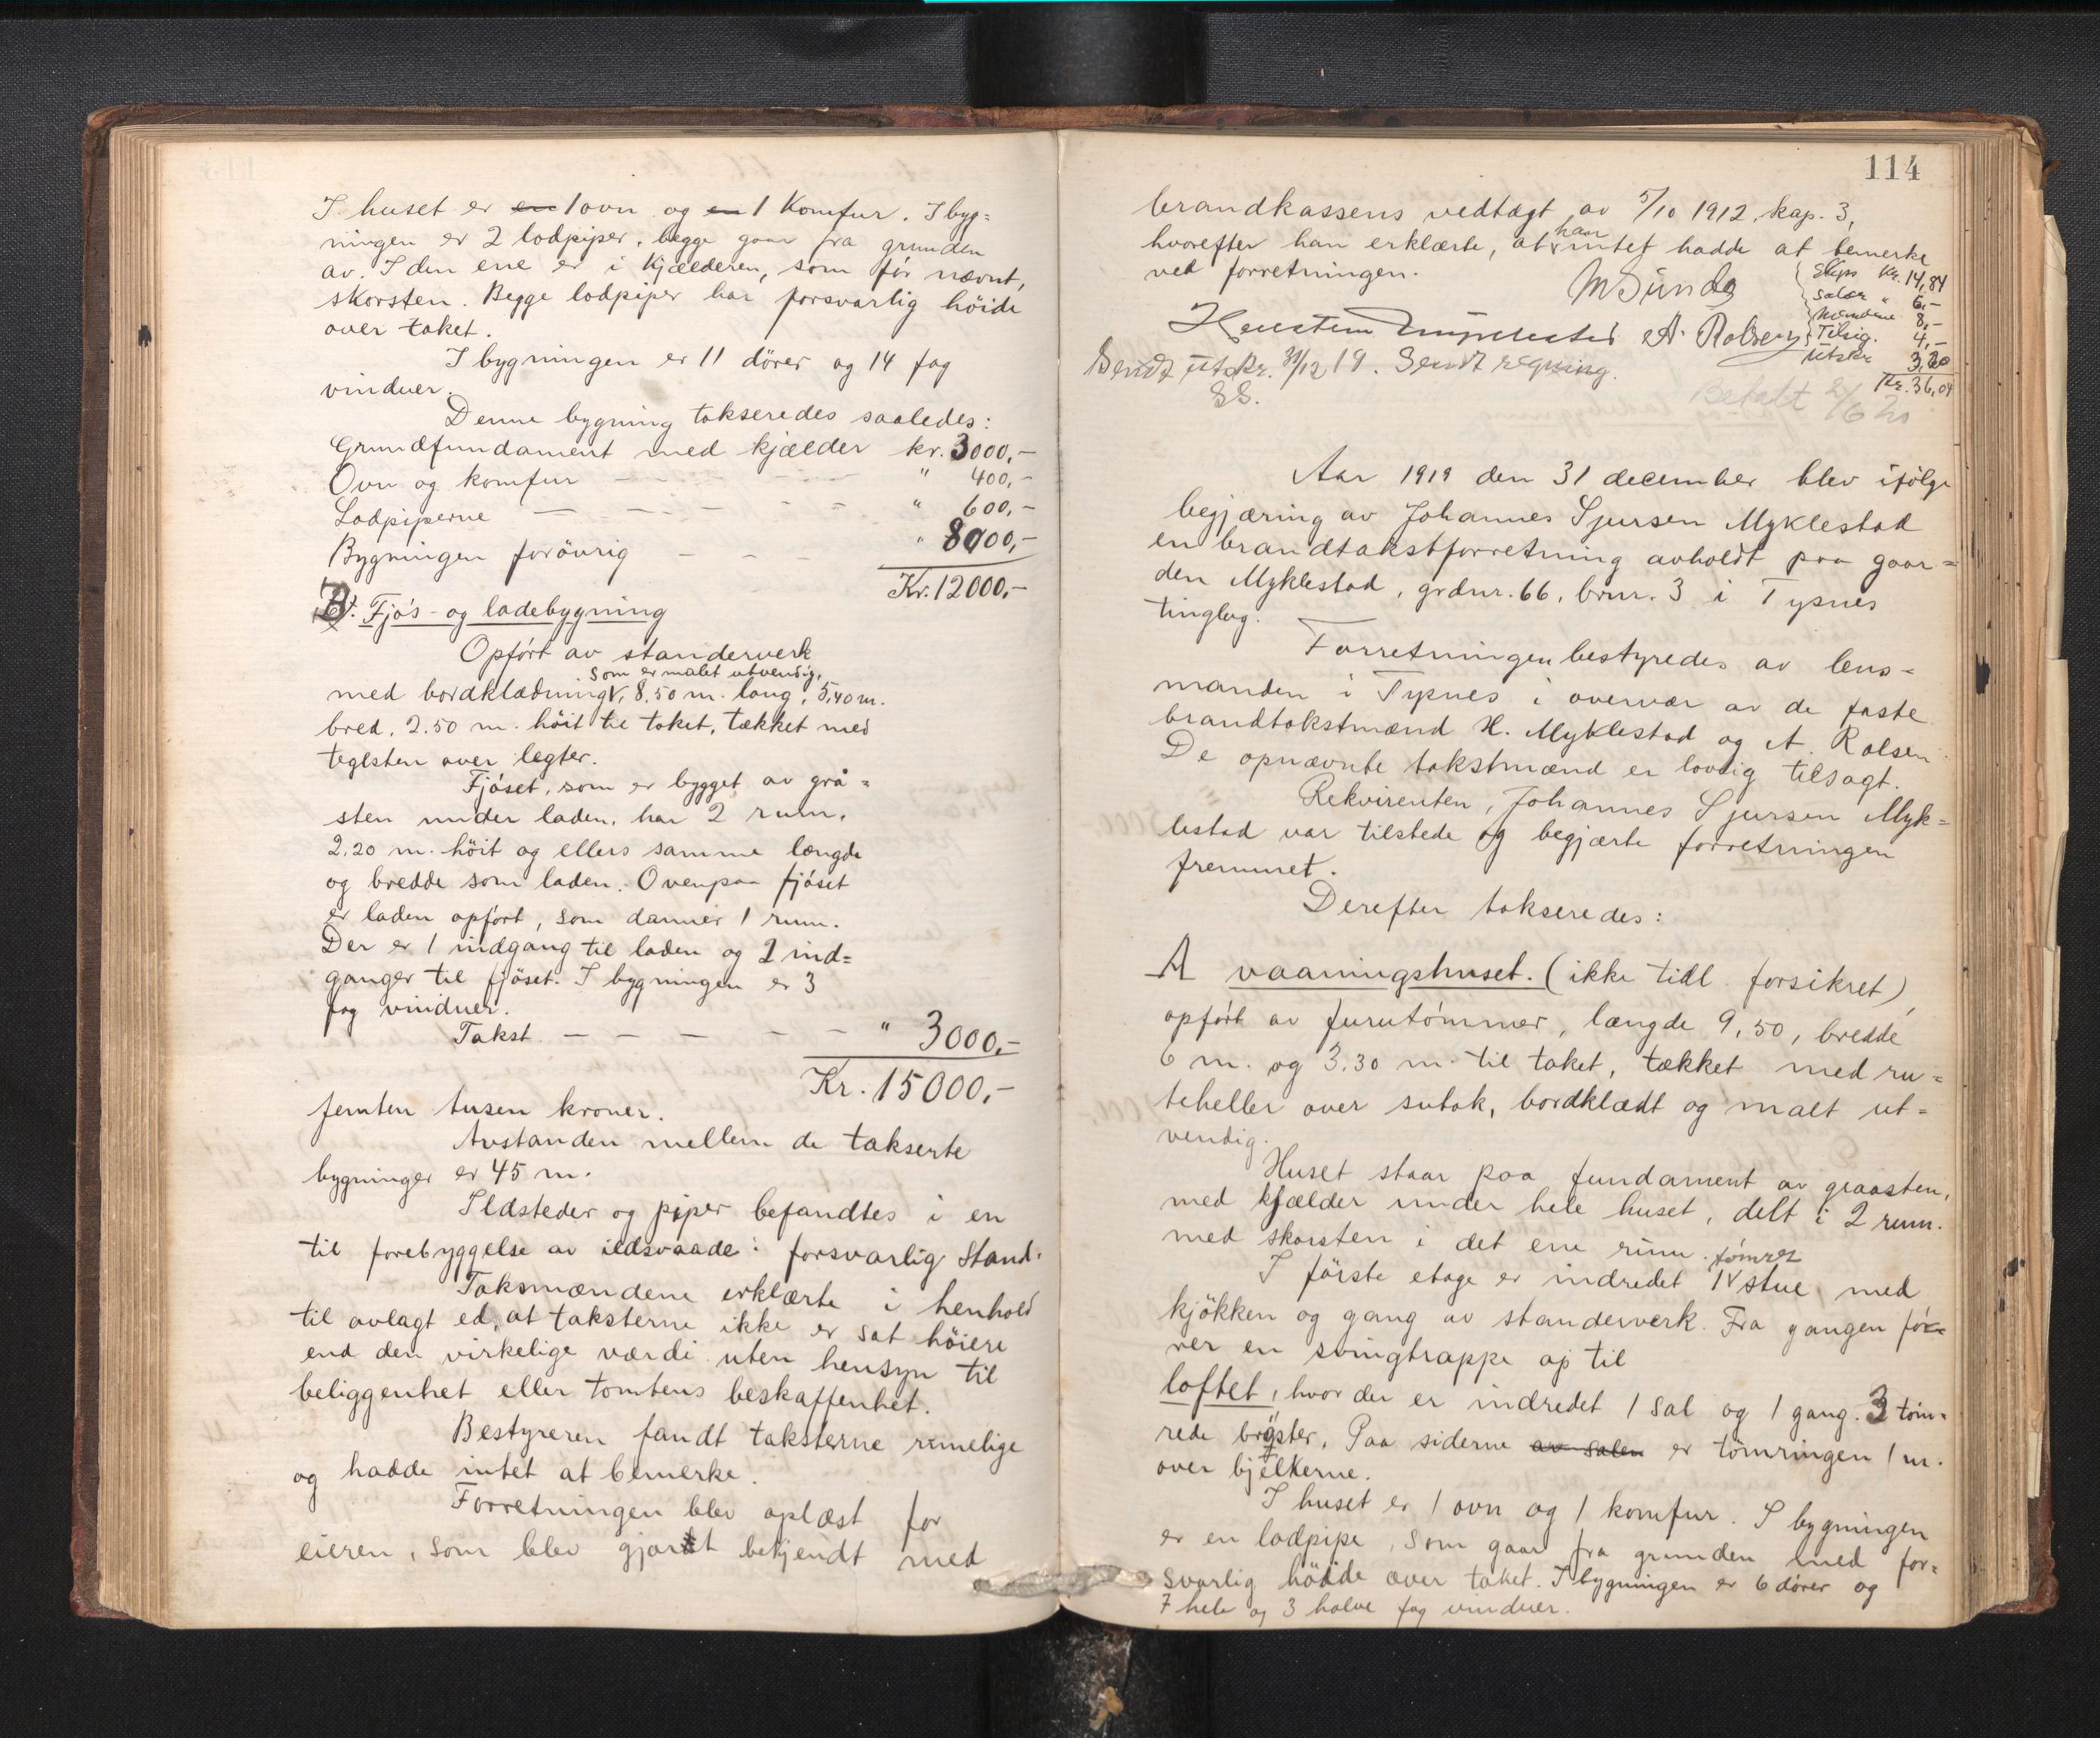 I huset er en 1 ovn og en 1 komfur. I byg=
ningen er 2 lodpiper, begge gaar fra grunden
av. I den ene er i kjælderen, som før nævnt,
skorsten. Begge lodpiper har forsvarlig höide
over taket.
I bygningen er 11 dører og 14 fag
vinduer.
Denne bygning takseredes saaledes:
Grundfundament med kjælder kr. 3000,-
Ovn og komfur " 400,-
Lodpiperne " 600,-
Bygningen forövrig " 8000,-
Kr. 12000,-
B. Fjös- og ladebygning
Opfört av standerverk
som er malet utvendig,
med bordklædning, 8.50 m. lang, 5,40 m.
bred, 2.50 m. höit til taket, tækket med
teglsten over legter.
Fjöset, som er bygget av grå=
sten under laden, har 2 rum,
2.20 m. höit og ellers samme længde
og bredde som laden. Ovenpaa fjöset
er laden opfört, som danner 1 rum.
Der er 1 indgang til laden og 2 ind=
ganger til fjöset. I bygningen er 3
fag vinduer.
Takst " 3000,-
Kr. 15000,-
femten tusen kroner.
Avstanden mellem de takserte
bygninger er 45 m.
Ildsteder og piper befandtes i en
til forebyggelse av ildsvaade: forsvarlig stand.
Taksmændene erklærte i henhold
til avlagt ed, at taksterne ikke er sat höiere
end den virkelige værdi uten hensyn til
beliggenhet eller tomtens beskaffenhet.
Bestyreren fandt taksterne rimelige
og hadde intet at bemerke.
Forretningen blev oplæst for
eieren, som blev gjort bekjendt med
114
brandkassens vedtægt av 5/10 1912, kap. 3,
hvorefter han erklærte, at han intet hadde at bemerke
ved forretningen.
M Sunde
Skyss Kr. 14,84
Salær " 6,-
Mændene 8,-
Tilsig. 4,-
Utskr 3,20
Kr. 36,04
A. Rolsen
Sendt utskr. 31/12 19. Sendt regning.
SS.
Betalt 2/6 20
Aar 1919 den 31 december blev ifölge
begjæring av Johannes Sjursen Myklestad
en brandtakstforretning avholdt paa gaar=
den Myklestad, grdnr. 66, brnr. 3 i Tysnes
tinglag.
Forretningen bestyredes av lens=
manden i Tysnes i overvær av de faste
brandtakstmænd H. Myklestad og A. Rolsen.
De opnævnte takstmænd er lovlig tilsagt.
Rekvirenten, Johannes Sjursen Myk=
lestad var tilstede og begjærte forretningen
fremmet.
Derefter takseredes:
A vaaningshuset. (ikke tidl. forsikret)
opfört av furutömmer, længde 9,50, bredde
6 m. og 3.30 m. til taket, tækket med ru=
teheller over sutak, bordklædt og malt ut=
vendig.
Huset staar paa fundament av graasten,
med kjælder under hele huset, delt i 2 rum.
med skorsten i det ene rum.
I förste etage er indredet 1 tömret stue med
kjökken og gang av standerverk. Fra gangen fö=
rer en svingtrappe op til
loftet, hvor der er indredet 1 sal og 1 gang. 3 töm=
rede bröster. Paa siderne av salen er tömringen 1 m.
over bjelkerne.
I huset er 1 ovn og 1 komfur. I bygningen
er en lodpipe, som gaar fra grunden med for=
svarlig höide over taket. I bygningen er 6 dörer og
7 hele og 3 halve fag vinduer.